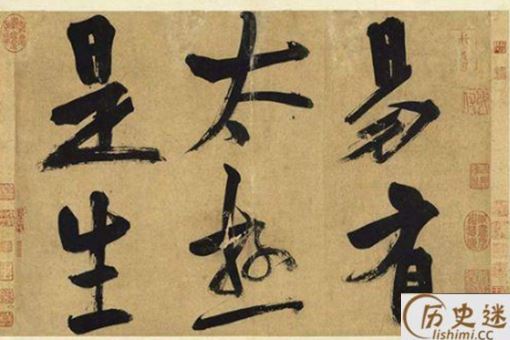 易有
太極
是生
历史迷
lishimi.cc